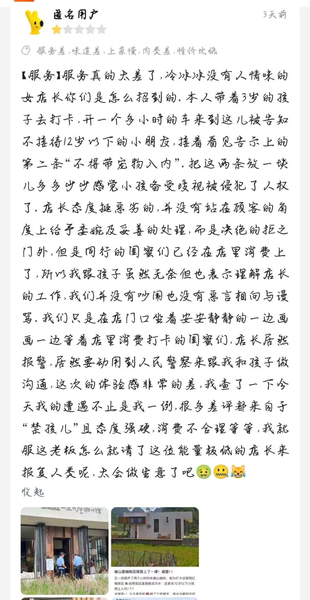 匿名用户
3天前
服务差,味道差,上菜慢,肉类差,性价比低
【服务】服务真的太差了,冷冰冰没有人情味的
女店长你们是怎么招到的.本人带着3岁的孩
子去打卡,开一个多小时的车来到这儿被告知
不接待12岁以下的小朋友,接着看见告示上的
第二条“不得带宠物入内”.把这两条放一块
儿多多少少感觉小孩备受歧视被侵犯了人权
了.店长态度挺恶劣的,并没有站在顾客的角
度上给予委婉及妥善的处理,而是决绝的拒之
门外,但是同行的闺蜜们已经在店里消费上
了,所以我跟孩子虽然无奈但也表示理解店长
的工作,我们并没有吵闹也没有恶言相向与谩
骂.我们只是在店门口坐着安安静静的一边画
画一边等着店里消费打卡的闺蜜们,店长居然
报警,居然要动用到人民警察来跟我和孩子做
沟通,这次的体验感非常的差,我查了一下今
天我的遭遇不止是我一例,很多差评都来自于
“禁孩儿”且态度强硬,消费不合理等等,我就
服这老板怎么就请了这位能量极低的店长来
报复人类呢,太会做生意了吧🤢🤐😹
收起